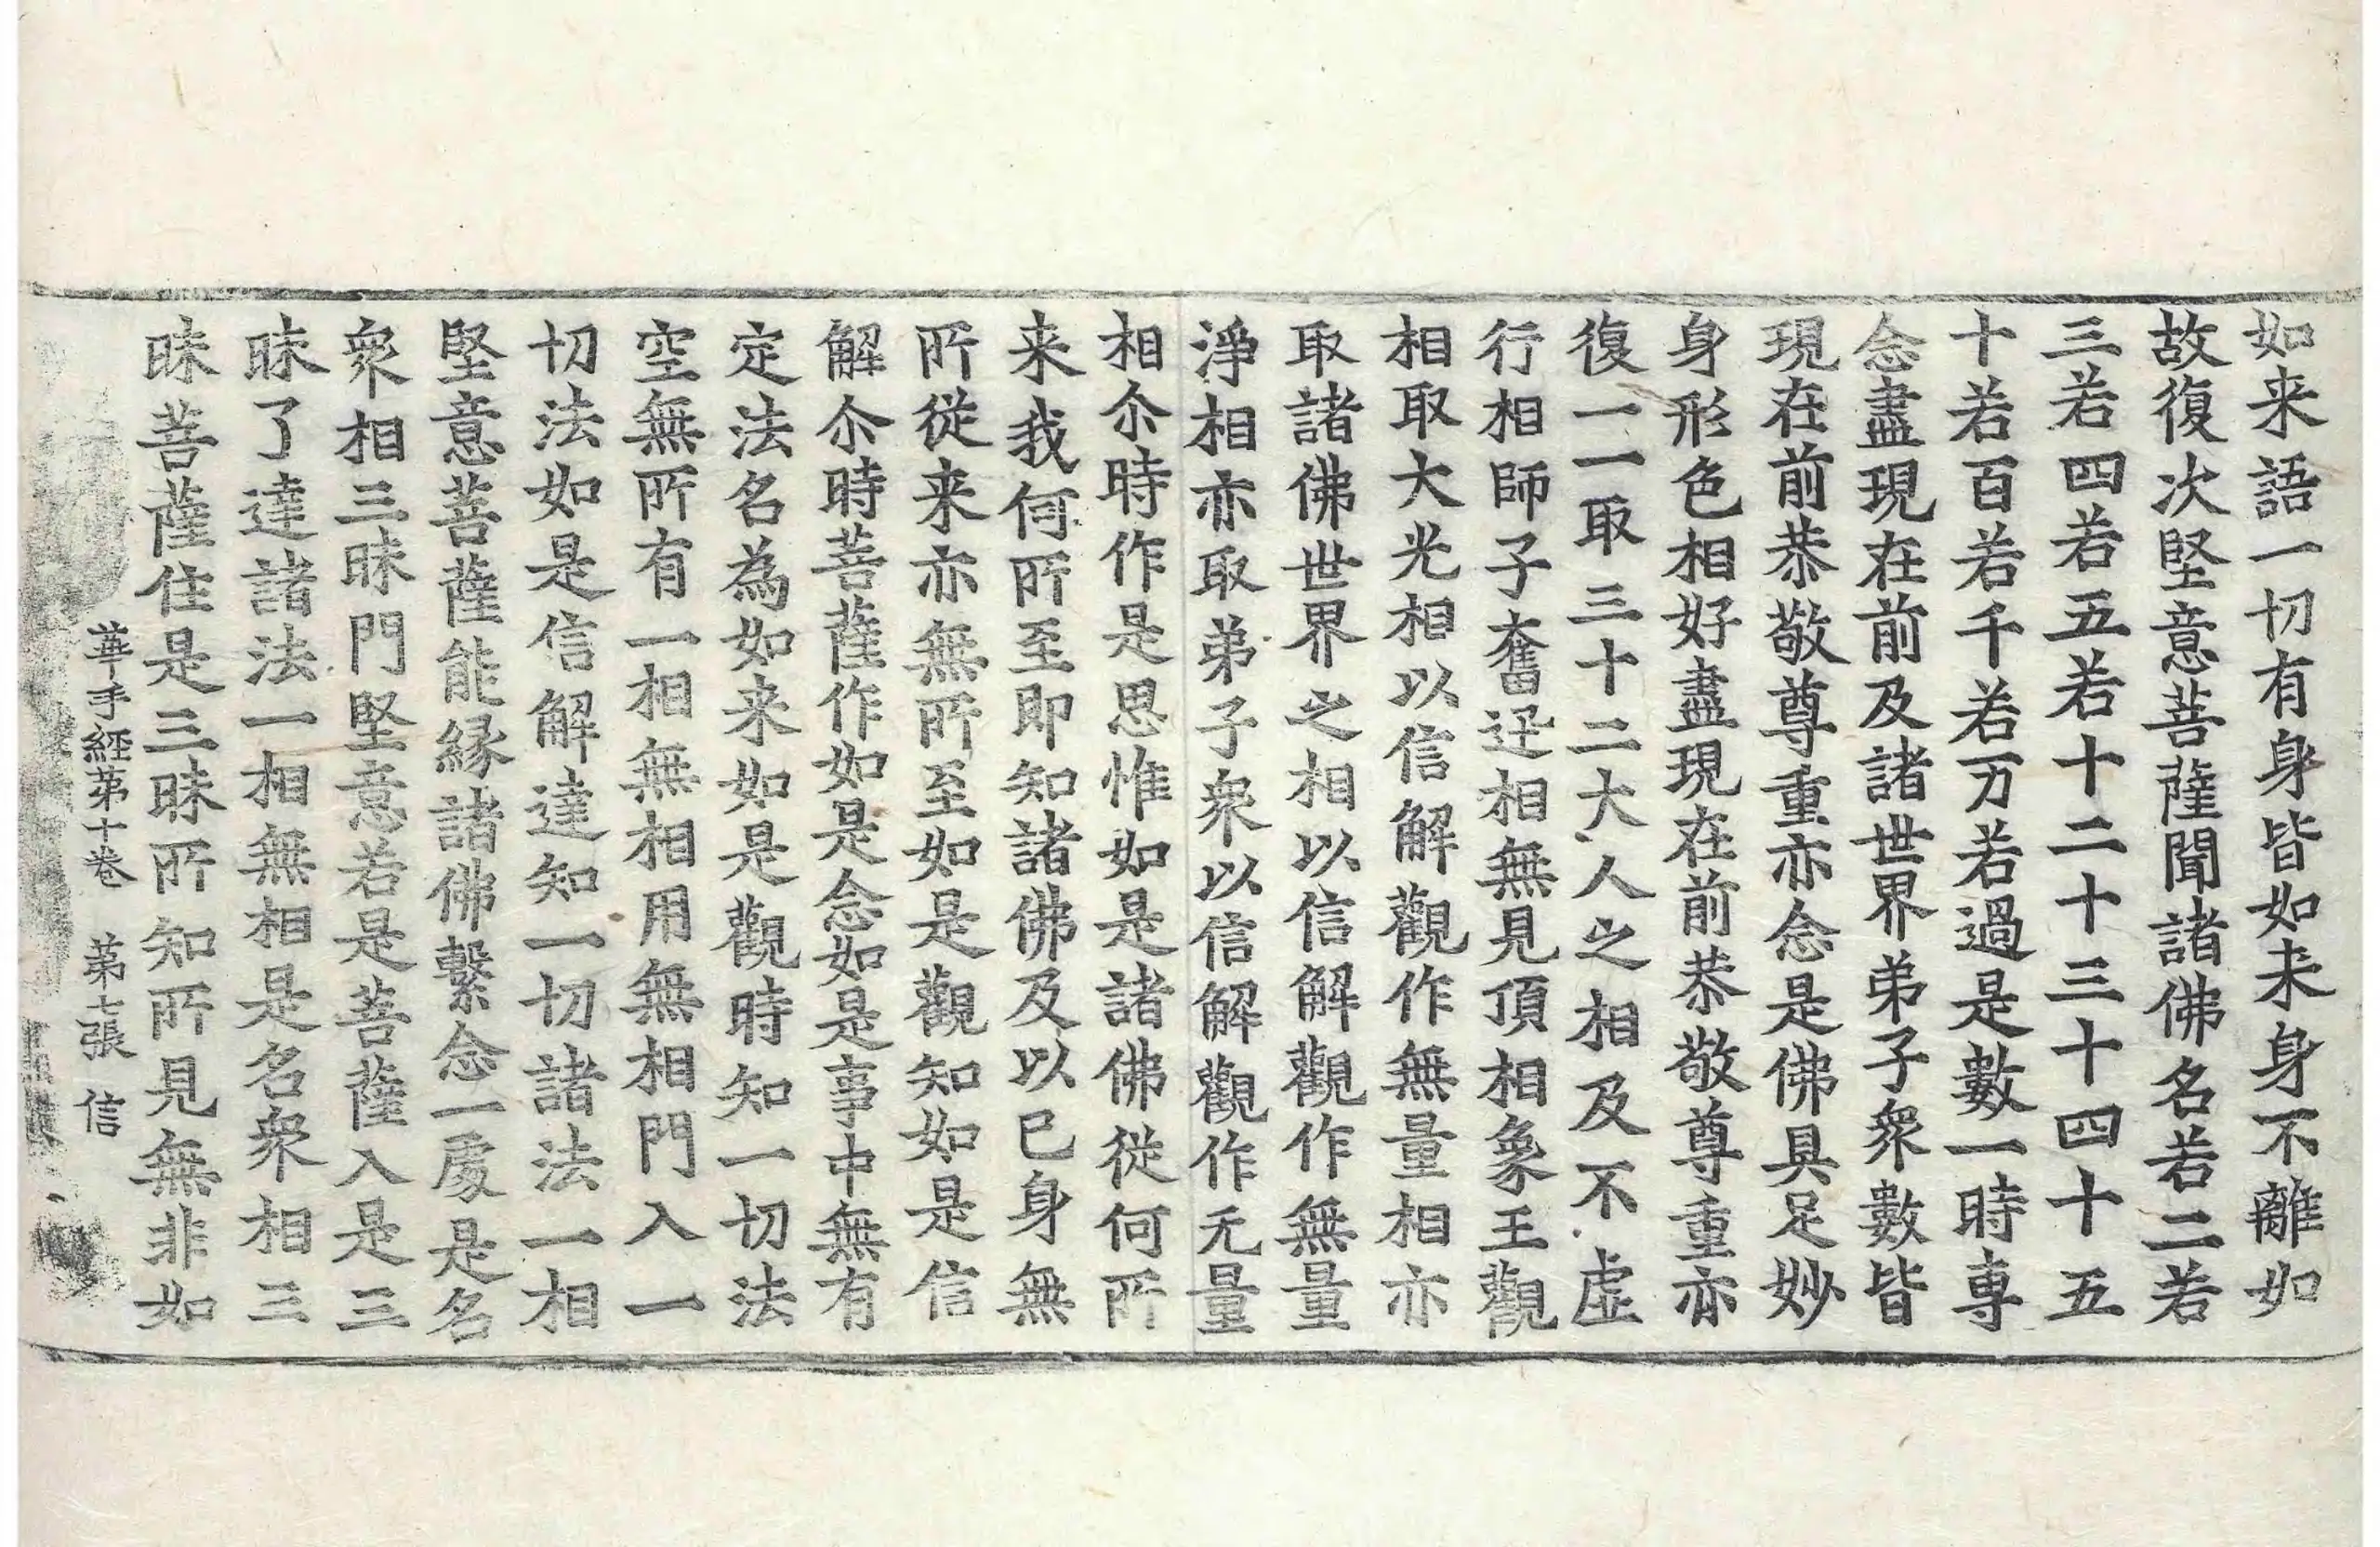 如来語一切有身皆如来身不離如
故復次堅意菩薩聞諸佛名若二若
三若四若五若十二十三十四十五
十若百若千若万若過是數一時専
念盡現在前及諸世界弟子衆數皆
現在前恭敬尊重亦念是佛具足妙
身形色相好盡現在前恭敬尊重亦
復一一取三十二大人之相及不虛
行相師子奮迅相無見頂相象王觀
相取大光相以信解觀作無量相亦
取諸佛世界之相以信解觀作無量
淨相亦取弟子衆以信解觀作无量
相尒時作是思惟如是諸佛從何所
来我何所至即知諸佛及以己身無
所從来亦無所至如是觀知如是信
解尒時菩薩作如是念如是事中無有
定法名為如来如是觀時知一切法
空無所有一相無相用無相門入一
切法如是信解達知一切諸法一相
堅意菩薩能緣諸佛繫念一處是名
衆相三昧門堅意若是菩薩入是三
昧了達諸法一相無相是名衆相三
昧菩薩住是三昧所知所見無非如
華手経第十卷　第七張　信